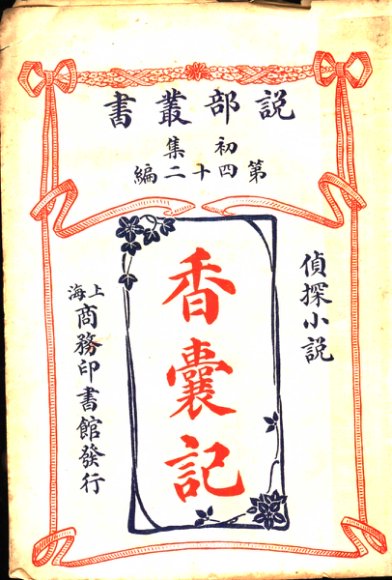 說部叢書
初集
第四十二編
偵探小說
香囊記
上海商務印書館發行